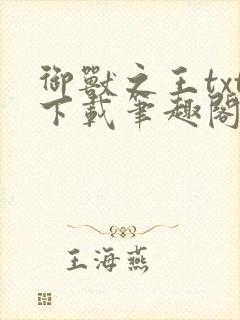 御獸之王txt
下載筆趣閣
王海燕